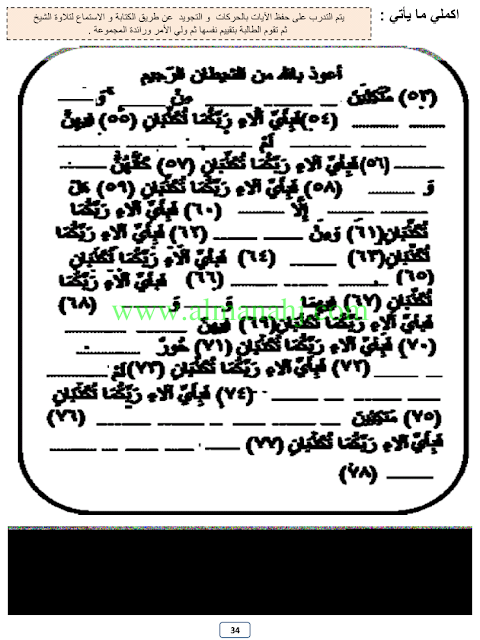 اكملي ما يأتي :
يتم التدرب على حفظ الآيات بالحركات و التجويد عن طريق الكتابة و الاستماع لتلاوة الشيخ
ثم تقوم الطالبة بتقييم نفسها ثم ولي الأمر ورائدة المجموعة .
أعوذ بالله من الشيطان الرجيم
(٥٣) مُتَّكِئِينَ ____ __ ____ مِنْ ____ وَ ____
____ ____ (٥٤) فَبِأَيِّ آلَاءِ رَبِّكُمَا تُكَذِّبَانِ (٥٥) فِيهِنَّ
____ ____ لَمْ ____ ____ ____
____ (٥٦) فَبِأَيِّ آلَاءِ رَبِّكُمَا تُكَذِّبَانِ (٥٧) كَأَنَّهُنَّ ____
وَ ____ (٥٨) فَبِأَيِّ آلَاءِ رَبِّكُمَا تُكَذِّبَانِ (٥٩) هَلْ
____ ____ إِلَّا ____ (٦٠) فَبِأَيِّ آلَاءِ رَبِّكُمَا
تُكَذِّبَانِ (٦١) وَمِنْ ____ ____ (٦٢) فَبِأَيِّ آلَاءِ رَبِّكُمَا
تُكَذِّبَانِ (٦٣) ____ (٦٤) فَبِأَيِّ آلَاءِ رَبِّكُمَا تُكَذِّبَانِ
(٦٥) ____ ____ ____ (٦٦) فَبِأَيِّ آلَاءِ رَبِّكُمَا
تُكَذِّبَانِ (٦٧) فِيهِمَا ____ وَ ____ وَ ____ (٦٨)
www.almanahj.com
فَبِأَيِّ آلَاءِ رَبِّكُمَا تُكَذِّبَانِ (٦٩) فِيهِنَّ ____ ____
(٧٠) فَبِأَيِّ آلَاءِ رَبِّكُمَا تُكَذِّبَانِ (٧١) حُورٌ ____
__ ____ (٧٢) فَبِأَيِّ آلَاءِ رَبِّكُمَا تُكَذِّبَانِ (٧٣) لَمْ ____
____ ____ __ ____ (٧٤) فَبِأَيِّ آلَاءِ رَبِّكُمَا تُكَذِّبَانِ
(٧٥) مُتَّكِئِينَ __ ____ ____ __ ____ ____ (٧٦)
فَبِأَيِّ آلَاءِ رَبِّكُمَا تُكَذِّبَانِ (٧٧) ____ ____ __ ____
____ (٧٨)
34